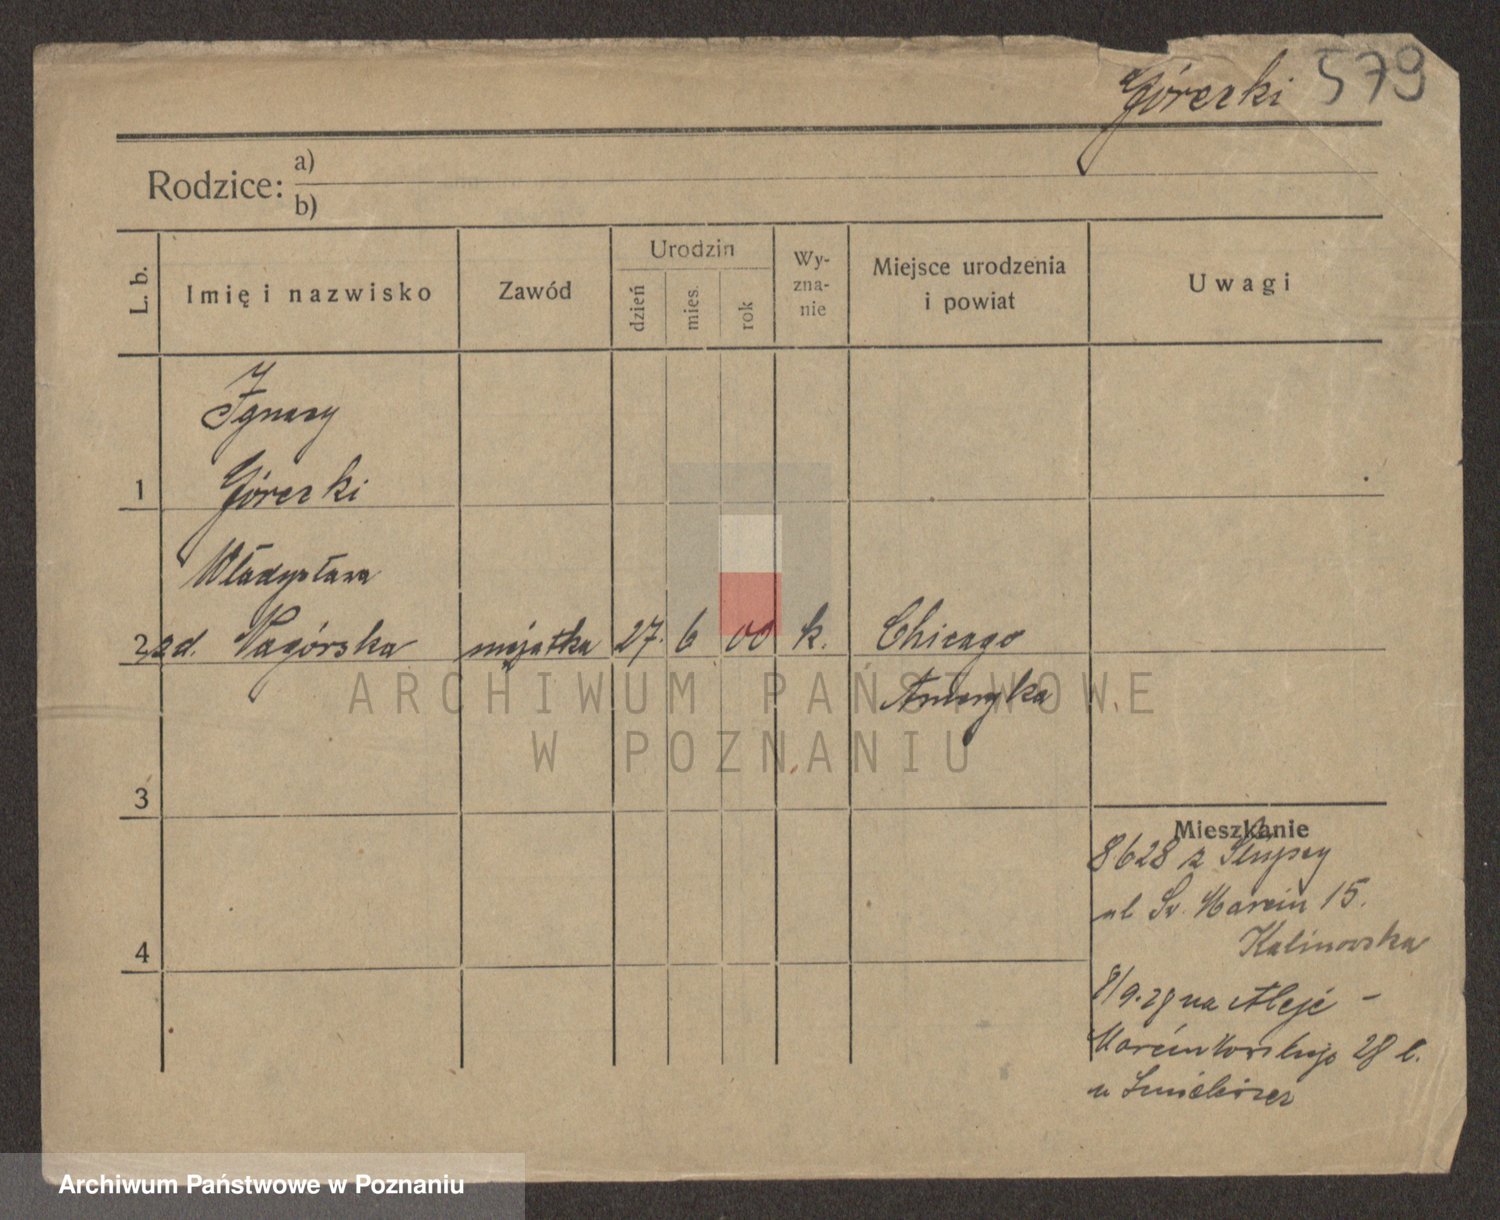 Górczki 579
Rodzice: a)
b)
L. b. Imię i nazwisko Zawód Urodzin dzień mies. rok Wy-zna-nie Miejsce urodzenia i powiat Uwagi
Ignacy
1 Górczki
Władysława
2 zd. Nagórska mężatka 27. 6 00 k. Chicago
Ameryka
3
4
Mieszkanie
8628 z Słupcy
ul Św. Marcin 15.
Kalinowska
8/9.28 na Aleje -
Marcinkowskiego 28 l.
u
ARCHIWUM PAŃSTWOWE
W POZNANIU
Archiwum Państwowe w Poznaniu